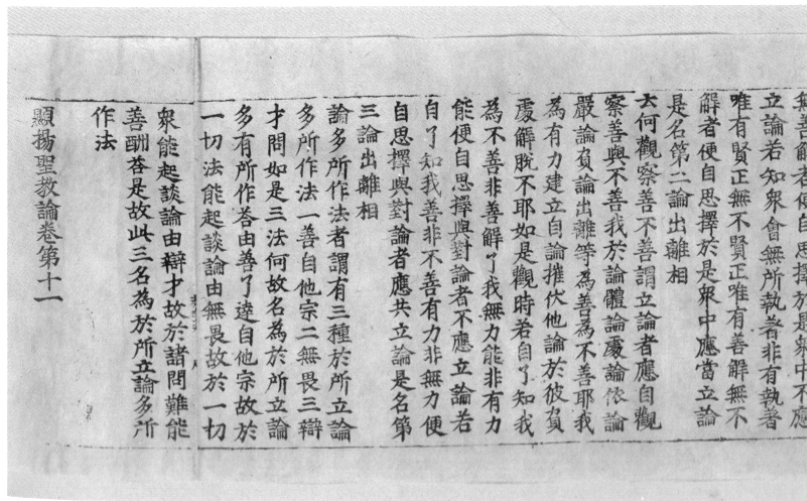 無善解者便自思擇於是衆中不應
立論若知衆會無所執著非有執著
唯有賢正無不賢正唯有善解無不
解者便自思擇於是衆中應當立論
是名第二論出離相
云何觀察善不善謂立論者應自觀
察善與不善我於論體論處論依論
嚴論負論出離等為善為不善耶我
為有力建立自論摧伏他論於彼負
處解脫不耶如是觀時若自了知我
為不善非善解了我無力能非有力
能便自思擇與對論者不應立論若
自了知我善非不善有力非無力便
自思擇與對論者應共立論是名第
三論出離相
論多所作法者謂有三種於所立論
多所作法一善自他宗二無畏三辯
才問如是三法何故名為於所立論
多有所作荅由善了達自他宗故於
一切法能起談論由無畏故於一切
衆能起談論由辯才故於諸問難能
善酬荅是故此三名為於所立論多所
作法
顯揚聖教論卷第十一